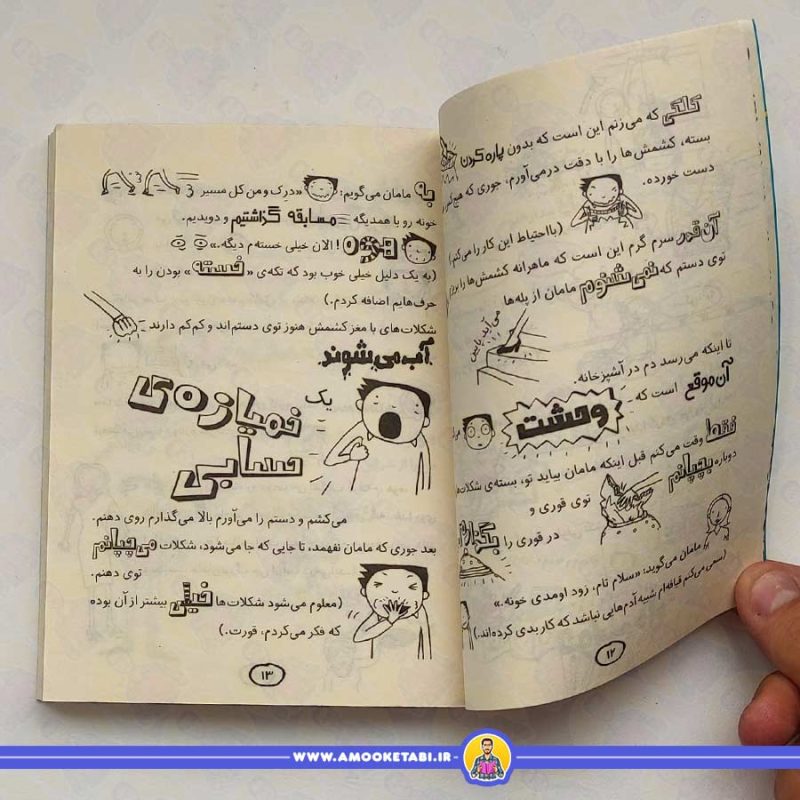 کلکی که می‌زنم این است که بدون پاره کردن
بسته، کشمش‌ها را با دقت درمی‌آورم، جوری که
دست خورده.
(با احتیاط این کار را می‌کنم)
آن قدر سرم گرم این است که ماهرانه کشمش‌ها را
توی دستم که نمی‌شنوم مامان از پله‌ها
می‌آید پایین
تا اینکه می‌رسد دم در آشپزخانه.
آن موقع است که وحشت
فقط وقت می‌کنم قبل اینکه مامان بیاید تو، بسته‌ی
دوباره بچپانم توی قوری و
در قوری را
مامان می‌گوید: «سلام تام، زود اومدی خونه.»
(سعی می‌کنم قیافه‌ام شبیه آدم‌هایی نباشد که کار بدی کرده‌اند.)
۱۲
به مامان می‌گویم: «دِرِک و من کل مسیر
خونه رو با همدیگه مسابقه گذاشتیم و دویدیم.
! الان خیلی خسته‌م دیگه.»
(به یک دلیل خیلی خوب بود که تکه‌ی «خسته» بودن را به
حرف‌هایم اضافه کردم.)
شکلات‌های با مغز کشمش هنوز توی دستم‌اند و کم‌کم دارند
آب می‌شوند.
یک خمیازه‌ی
حسابی
می‌کشم و دستم را می‌آورم بالا می‌گذارم روی دهنم.
بعد جوری که مامان نفهمد، تا جایی که جا می‌شود، شکلات می‌چپانم
توی دهنم.
(معلوم می‌شود شکلات‌ها خیلی بیشتر از آن بوده
که فکر می‌کردم، قورت.)
۱۳
WWW.AMOOKETABI.IR